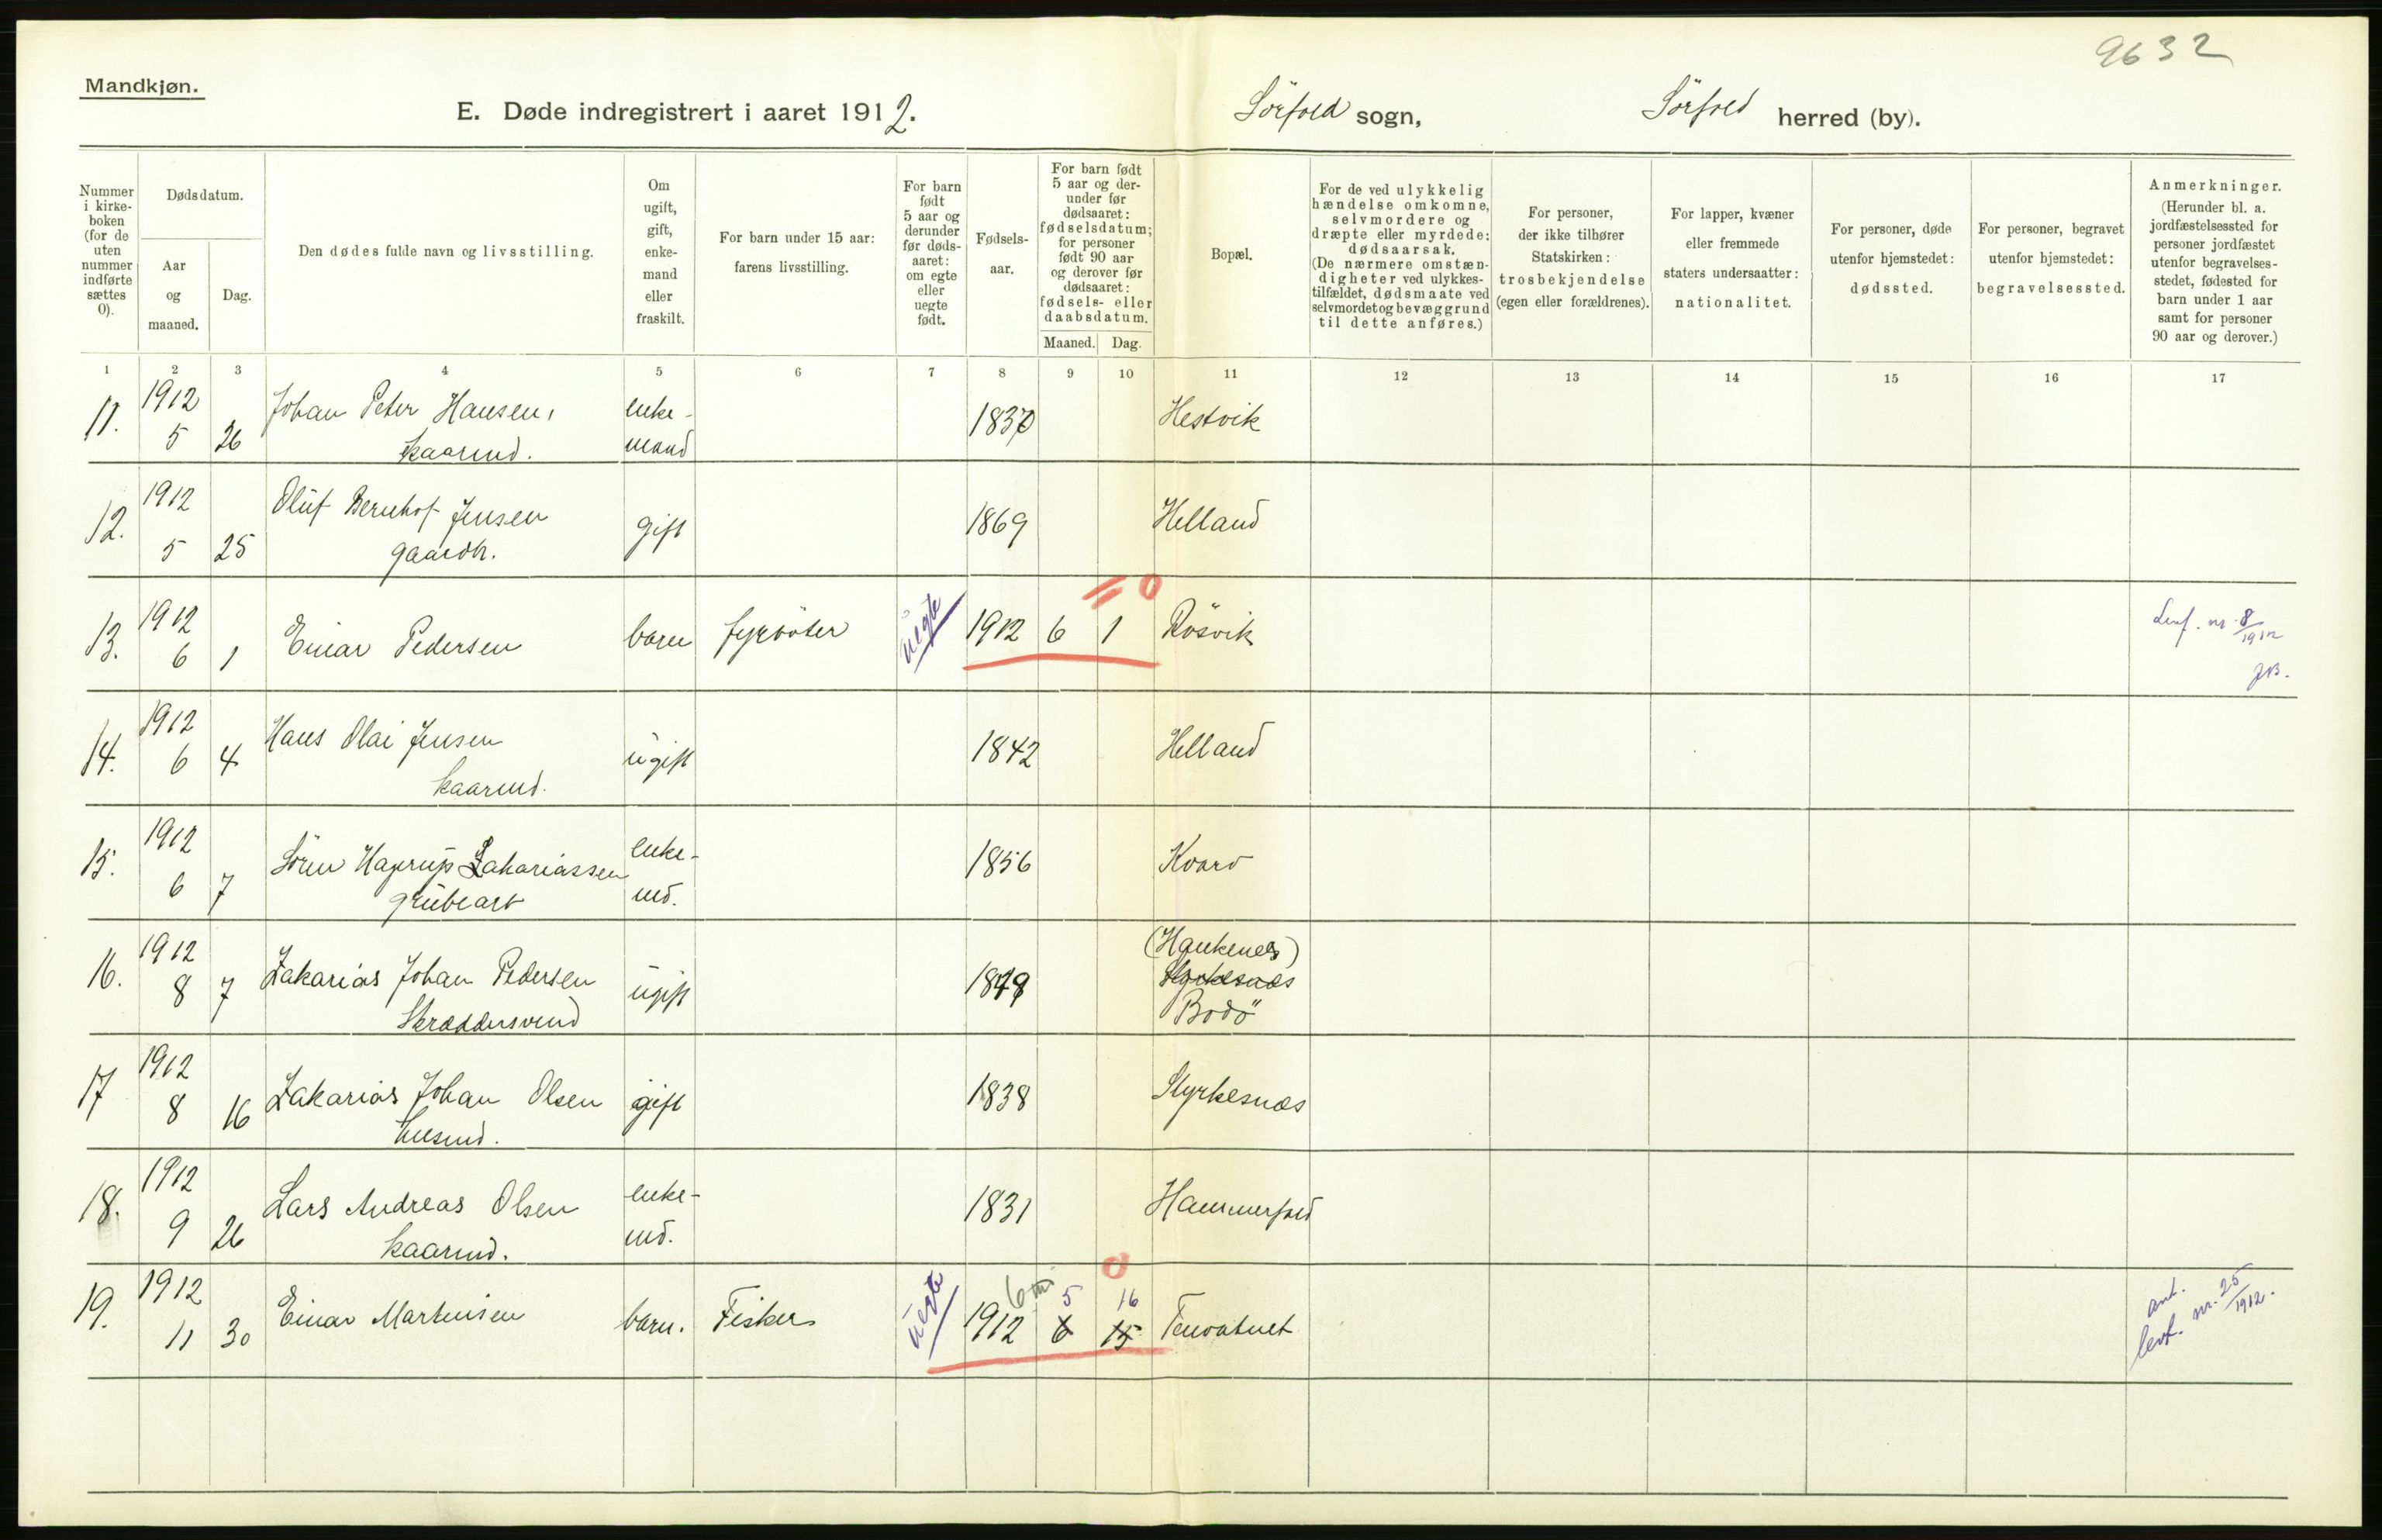 9632
Mandkjøn.
E. Døde indregistrert i aaret 1912.
Sörfold sogn,
Sörfold herred (by).
Nummer i kirke- boken (for de uten nummer indførte sættes 0).
Dødsdatum.
Aar og maaned.
Dag.
Den dødes fulde navn og livsstilling.
Om ugift, gift, enke- mand eller fraskilt.
For barn under 15 aar: farens livsstilling.
For barn født 5 aar og derunder før døds- aaret: om egte eller uegte født.
Fødsels- aar.
For barn født 5 aar og der- under før dødsaaret: fødselsdatum; for personer født 90 aar og derover før dødsaaret: fødsels- eller daabsdatum.
Maaned. Dag.
Bopæl.
For de ved ulykkelig hændelse omkomne, selvmordere og dræpte eller myrdede: dødsaarsak. (De nærmere omstæn- digheter ved ulykkes- tilfældet, dødsmaate ved selvmordet og bevæggrund til dette anføres.)
For personer, der ikke tilhører Statskirken: trosbekjendelse (egen eller forældrenes).
For lapper, kvæner eller fremmede staters undersaatter: nationalitet.
For personer, døde utenfor hjemstedet: dødssted.
For personer, begravet utenfor hjemstedet: begravelsessted.
Anmerkninger. (Herunder bl. a. jordfæstelsessted for personer jordfæstet utenfor begravelses- stedet, fødested for barn under 1 aar samt for personer 90 aar og derover.)
1 2 3 4 5 6 7 8 9 10 11 12 13 14 15 16 17
11. 1912 5 26 Johan Peter Hansen, kaarmd. enke- mand 1837 Hestvik
12. 1912 5 25 Oluf Bernhof Jensen gaardbr. gift 1869 Helland
13. 1912 6 1 Einar Pedersen barn fyrböter uegte 1912 6 1 = 0 Rösvik nr. 8/1912 JB.
14. 1912 6 4 Hans Olai Jensen kaarmd. ugift 1842 Helland
15. 1912 6 7 Sören Hagrup Zakariassen grubearb enke- md. 1856 Kvarv
16. 1912 8 7 Zakarias Johan Pedersen Skræddersvend ugift 1849 (Haukenes) Styrkesnæs Bodö
17 1912 8 16 Zakarias Johan Olsen husmd. gift 1838 Styrkesnæs
18. 1912 9 26 Lars Andreas Olsen kaarmd. enke- md. 1831 Hammerfold
19. 1912 11 30 Einar Martinsen barn. Fisker uegte 1912 6 m 5 6 0 16 15 Tenvatnet ant. levf. nr. 25/1912.